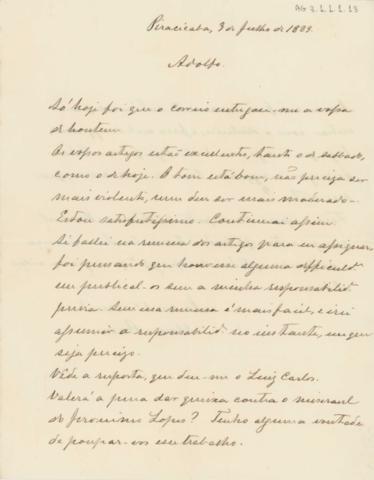 AG 3.1.1.1.13
Piracicaba, 3 de Julho de 1893.
Adolpho.
Só hoje foi que o correio entregou-me a vossa
de hontem.
Os vossos artigos estão excellentes, tanto o de sabbado,
como o de hoje. O tom está bom, não precisa ser
mais violento, nem deve ser mais moderado.-
Estou satisfeitissimo. Continuai assim.
Si fallei na remessa dos artigos para eu assignar,
foi pensando que houvesse alguma difficuld
em publical-os sem a minha responsabilid
previa. Sem essa remessa é mais facil, e irei
assumir a responsabilid no instante, em que
seja preciso.
Vêde a resposta, que deu-me o Luiz Carlos.
Valerá a pena dar queixa contra o miseravel
do Jeronimo Lopes? Tenho alguma vontade
de poupar-vos esse trabalho.